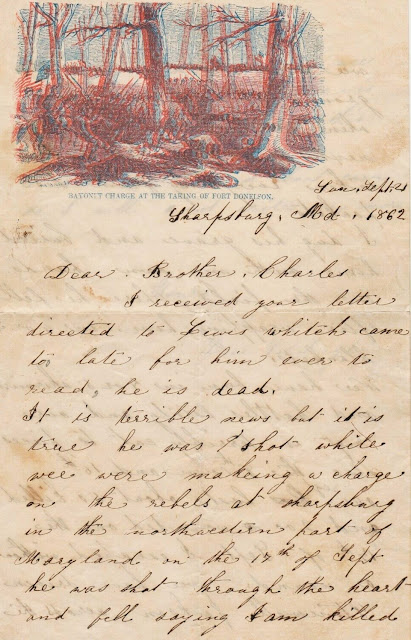 BAYONET CHARGE AT THE TAKING OF FORT DONELSON.
Sun, Sept. 21
Sharpsburg, Md. 1862
Dear Brother Charles
I received your letter
directed to Lewis whitch came
too late for him ever to
read, he is dead.
It is terrible news but it is
true he was shot while
wee were makeing a charge
on the rebels at sharpsburg
in the northwestern part of
Maryland on the 17th of Sept
he was shot through the heart
and fell saying I am killed